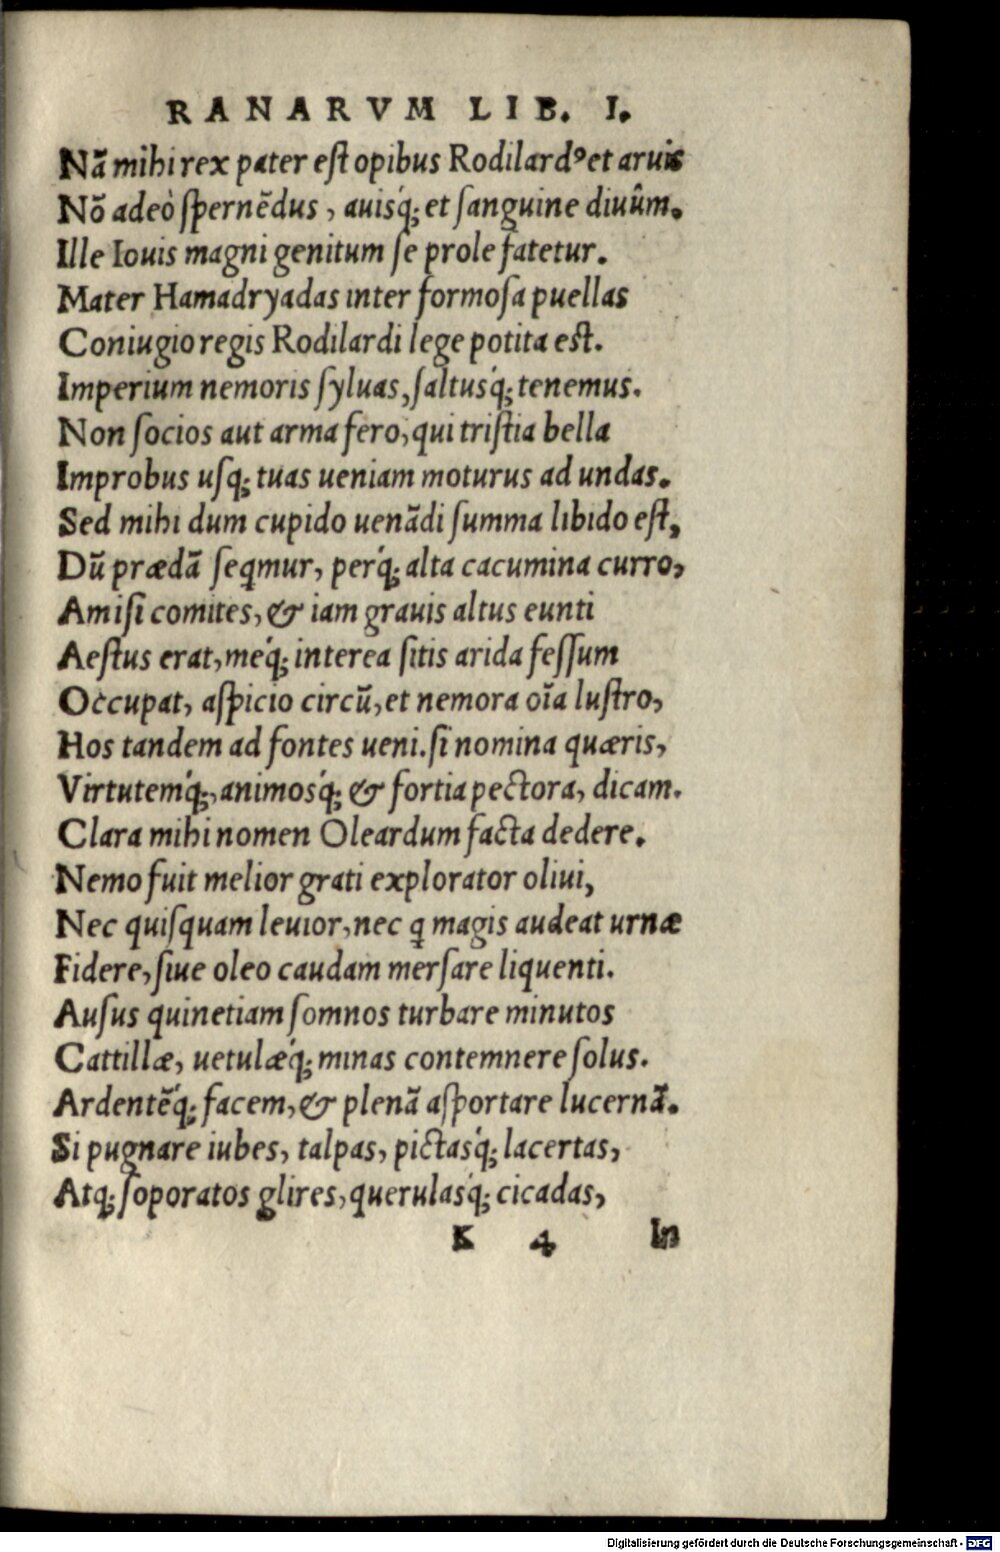 RANARVM LIB. I.
Nā mihi rex pater eſt opibus Rodilardꝰ et aruis
Nō adeò ſpernēdus, auisq́; et ſanguine diuûm.
Ille Iouis magni genitum ſe prole fatetur.
Mater Hamadryadas inter formoſa puellas
Coniugio regis Rodilardi lege potita eſt.
Imperium nemoris ſyluas, ſaltusq́; tenemus.
Non ſocios aut arma fero, qui triſtia bella
Improbus uſq; tuas ueniam moturus ad undas.
Sed mihi dum cupido uenādi ſumma libido eſt,
Dū prædā ſeqmur, perq́; alta cacumina curro,
Amiſi comites, & iam grauis altus eunti
Aeſtus erat, meq́; interea ſitis arida feſſum
Occupat, aſpicio circū, et nemora oīa luſtro,
Hos tandem ad fontes ueni. ſi nomina quæris,
Virtutemq́;, animosq́; & fortia pectora, dicam.
Clara mihi nomen Oleardum facta dedere.
Nemo fuit melior grati explorator oliui,
Nec quiſquam leuior, nec q magis audeat urnæ
Fidere, ſiue oleo caudam merſare liquenti.
Auſus quinetiam ſomnos turbare minutos
Cattillæ, uetulæq́; minas contemnere ſolus.
Ardentēq́; facem, & plenā aſportare lucernā.
Si pugnare iubes, talpas, pictasq́; lacertas,
Atq; ſoporatos glires, querulasq́; cicadas,
K 4 In
Digitalisierung gefördert durch die Deutsche Forschungsgemeinschaft - DFG